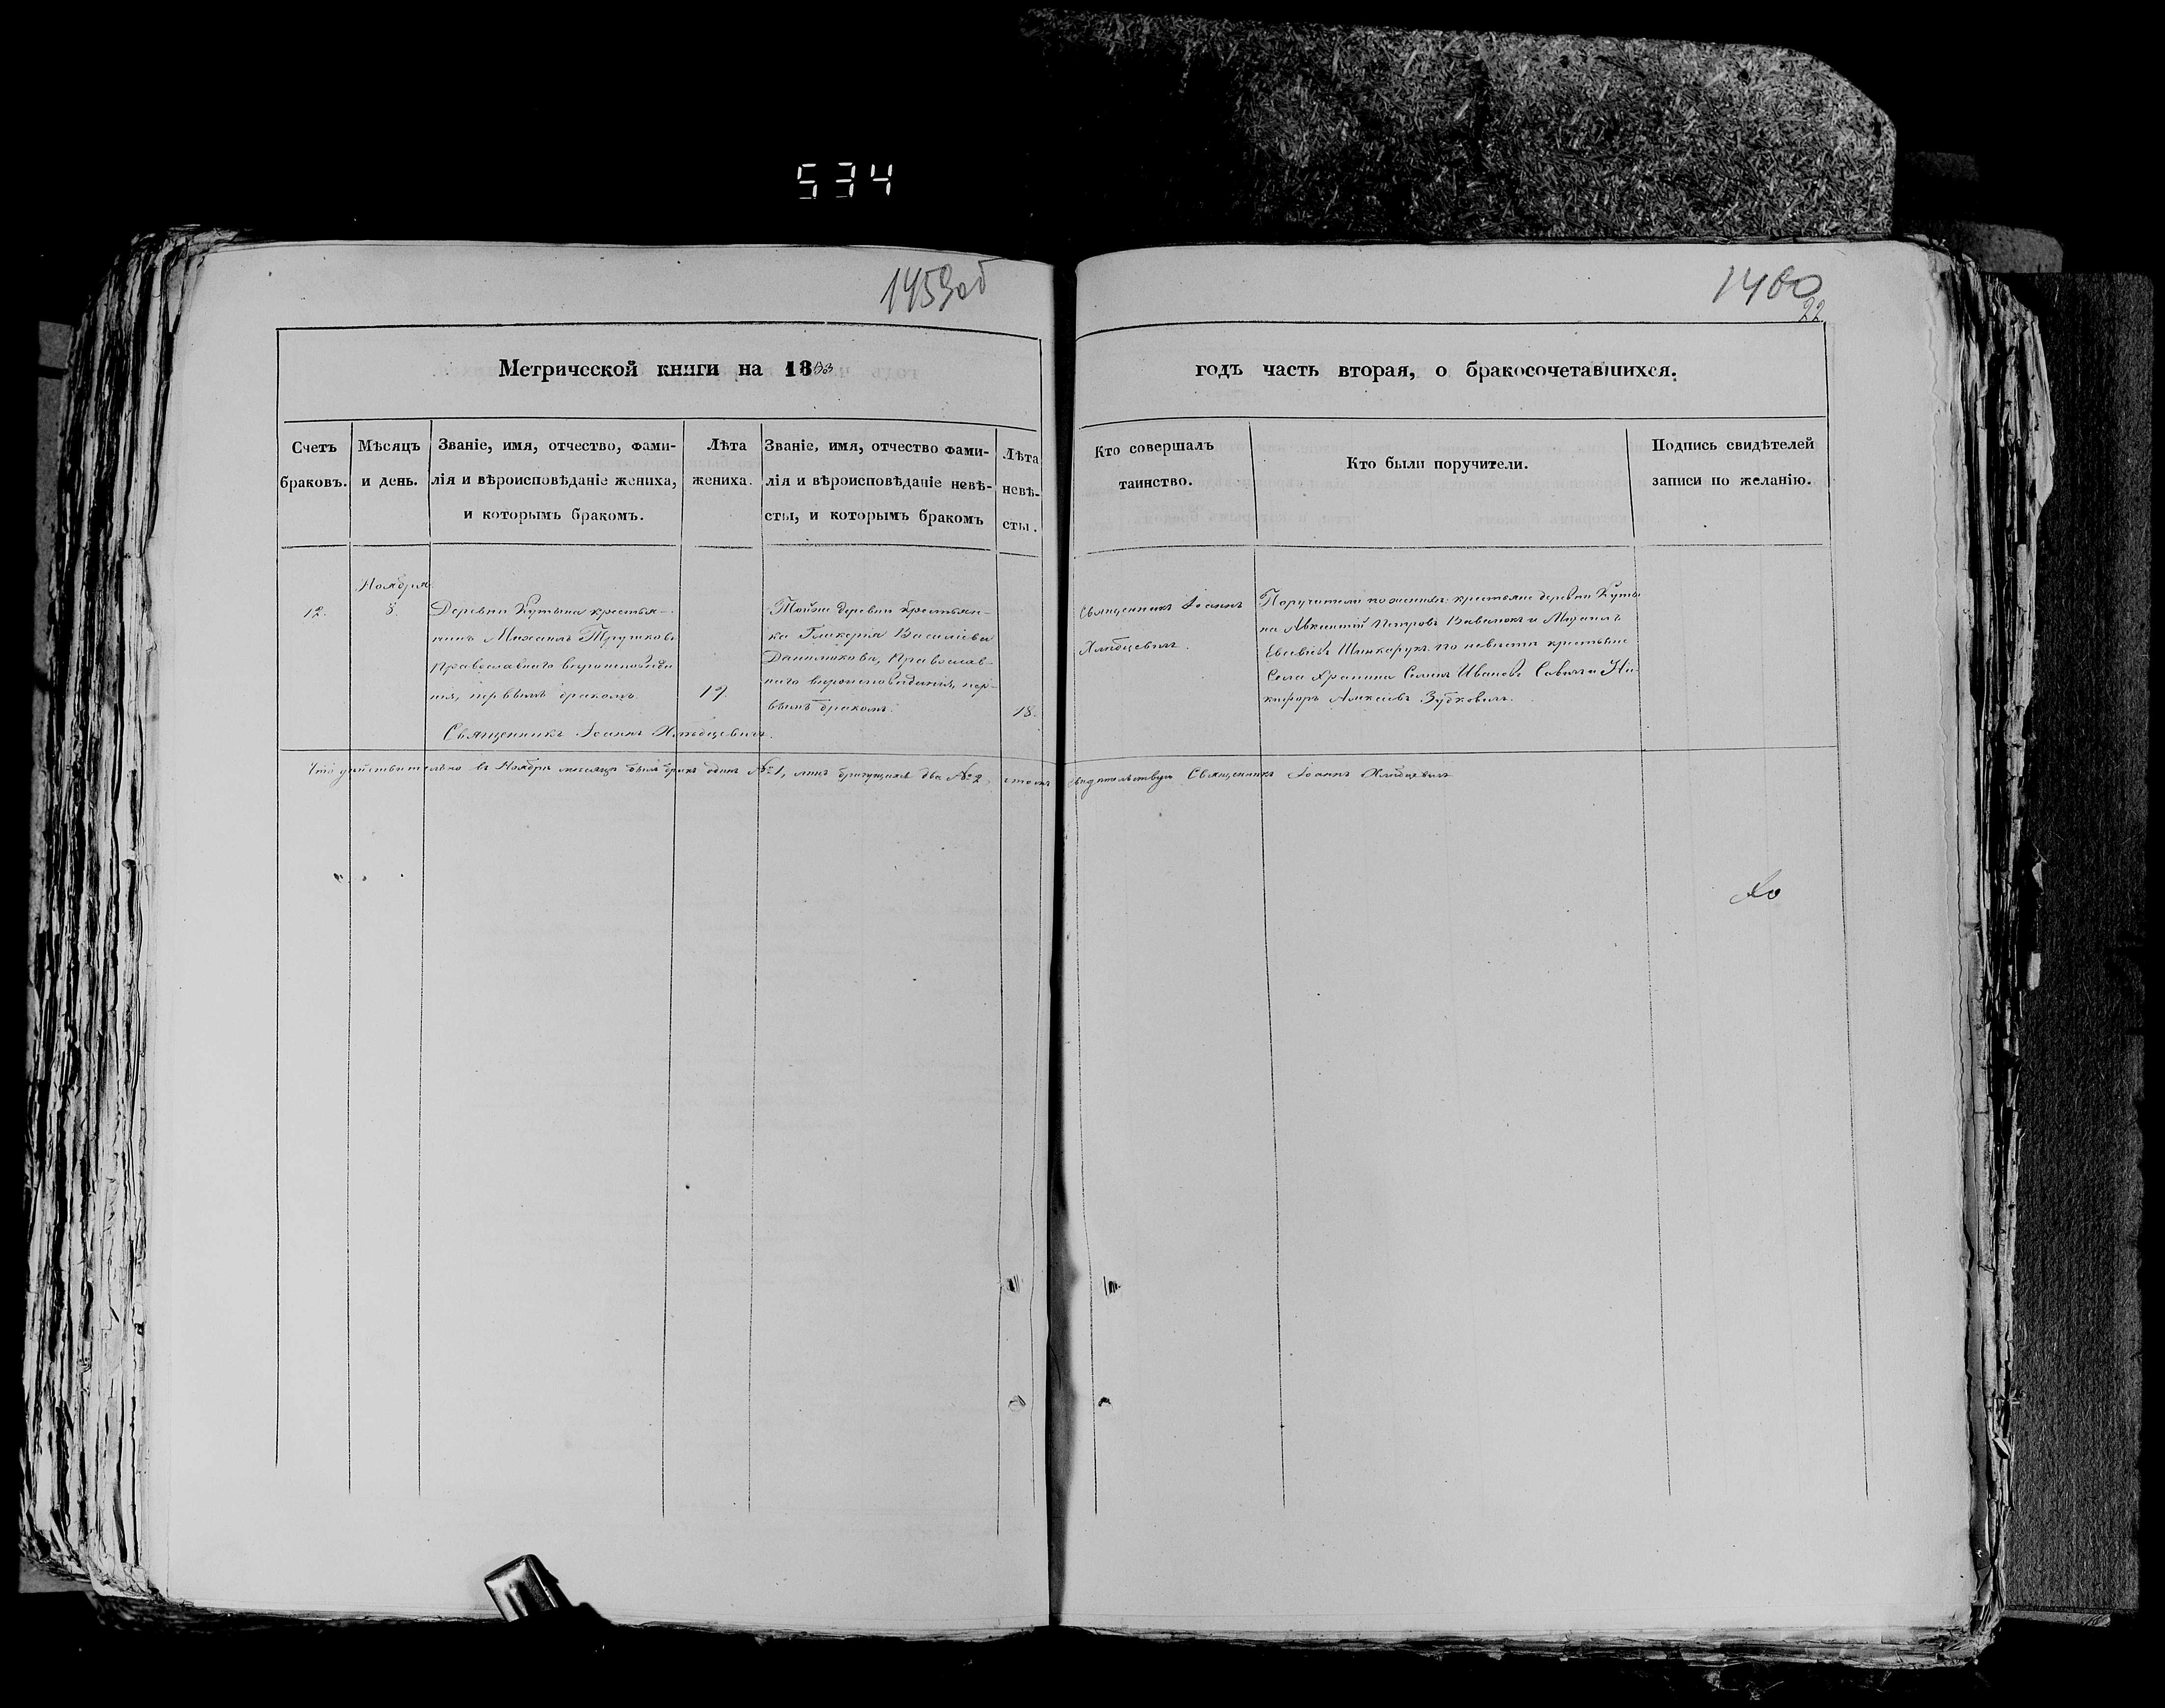 534
1459об
1460
22
Метрической книги на 1863
годъ часть вторая, о бракосочетавшихся.
Счетъ
браковъ.
Мѣсяцъ
и день.
Званіе, имя, отчество, фами-
лія и вѣроисповѣданіе жениха,
и которымъ бракомъ.
Лѣта
жениха.
Званіе, имя, отчество фами-
лія и вѣроисповѣданіе невѣ-
сты, и которымъ бракомъ
Лѣта
невѣ-
сты.
Кто совершалъ
таинство.
Кто были поручители.
Подпись свидѣтелей
записи по желанію.
12.
Ноября
Деревни Кутына крестья-
нинъ Михаилъ
Православнаго вероисповеда
нія, первымъ бракомъ.
19.
Тойже деревни крестьян-
ка Гликерія Василіева
Данилюкова, Православ-
наго вероисповеданія, пер-
вымъ бракомъ.
18.
Священникъ Іоаннъ
Священникъ Іоаннъ
Поручители по женихе: крестьяне деревни Куты
на Петровъ и Михаилъ
по невесте крестьяне
Села Иванов и Ни-
кифоръ Алексеевъ Зубковичъ.
Что действительно въ Ноябре месяце былъ бракъ одинъ № 1, лицъ два № 2, въ томъ
свидетельствую Священникъ Іоаннъ